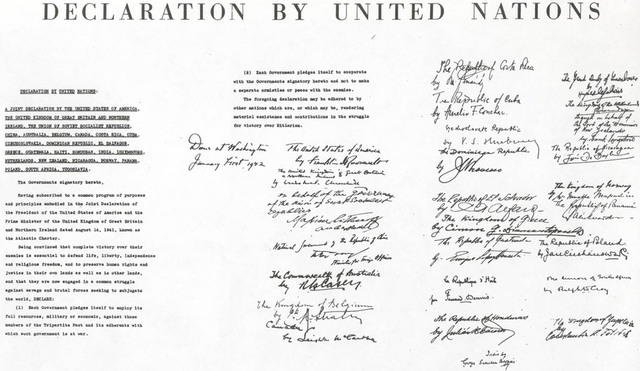 DECLARATION BY UNITED NATIONS
DECLARATION BY UNITED NATIONS:
A JOINT DECLARATION BY THE UNITED STATES OF AMERICA,
THE UNITED KINGDOM OF GREAT BRITAIN AND NORTHERN
IRELAND, THE UNION OF SOVIET SOCIALIST REPUBLICS,
CHINA, AUSTRALIA, BELGIUM, CANADA, COSTA RICA, CUBA,
CZECHOSLOVAKIA, DOMINICAN REPUBLIC, EL SALVADOR,
GREECE, GUATEMALA, HAITI, HONDURAS, INDIA, LUXEMBOURG,
NETHERLANDS, NEW ZEALAND, NICARAGUA, NORWAY, PANAMA,
POLAND, SOUTH AFRICA, YUGOSLAVIA.
The Governments signatory hereto,
Having subscribed to a common program of purposes
and principles embodied in the Joint Declaration of
the President of the United States of America and the
Prime Minister of the United Kingdom of Great Britain
and Northern Ireland dated August 14, 1941, known as
the Atlantic Charter.
Being convinced that complete victory over their
enemies is essential to defend life, liberty, independence
and religious freedom, and to preserve human rights and
justice in their own lands as well as in other lands,
and that they are now engaged in a common struggle
against savage and brutal forces seeking to subjugate
the world, DECLARE:
(1) Each Government pledges itself to employ its
full resources, military or economic, against those
members of the Tripartite Pact and its adherents with
which such government is at war.
(2) Each Government pledges itself to cooperate
with the Governments signatory hereto and not to make
a separate armistice or peace with the enemies.
The foregoing declaration may be adhered to by
other nations which are, or which may be, rendering
material assistance and contributions in the struggle
for victory over Hitlerism.
Done at Washington
January First 1942
The United States of America
by Franklin D Roosevelt
The United Kingdom of Great Britain
& Northern Ireland
by Winston S. Churchill
On behalf of the Government
of the Union of Soviet Socialist
Republics
National Government of the Republic of China
Minister for Foreign Affairs
The Commonwealth of Australia
by R G Casey
The Kingdom of Belgium
by
Canada
by Leighton McCarthy
The Republic of Costa Rica
by
The Republic of Cuba
by Aurelio F. Concheso
Czechoslovak Republic
by V. S. Hurban
The Dominican Republic
by
The Republic of El Salvador
by C A Alfaro
The Kingdom of Greece
by Cimon
The Republic of Guatemala
by
La République d'Haïti
par Fernand Dennis
The Republic of Honduras
by Julián R. Cáceres
India by
Girja Shankar Bajpai
The Grand Duchy of Luxembourg
by
The Kingdom of the Netherlands
Signed on behalf of
the Govt of the Dominion
of New Zealand
by
The Republic of Nicaragua
by
The Kingdom of Norway
by
The Republic of Panama
by
The Republic of Poland
by Jan Ciechanowski
The Union of South Africa
by
The Kingdom of Yugoslavia
by